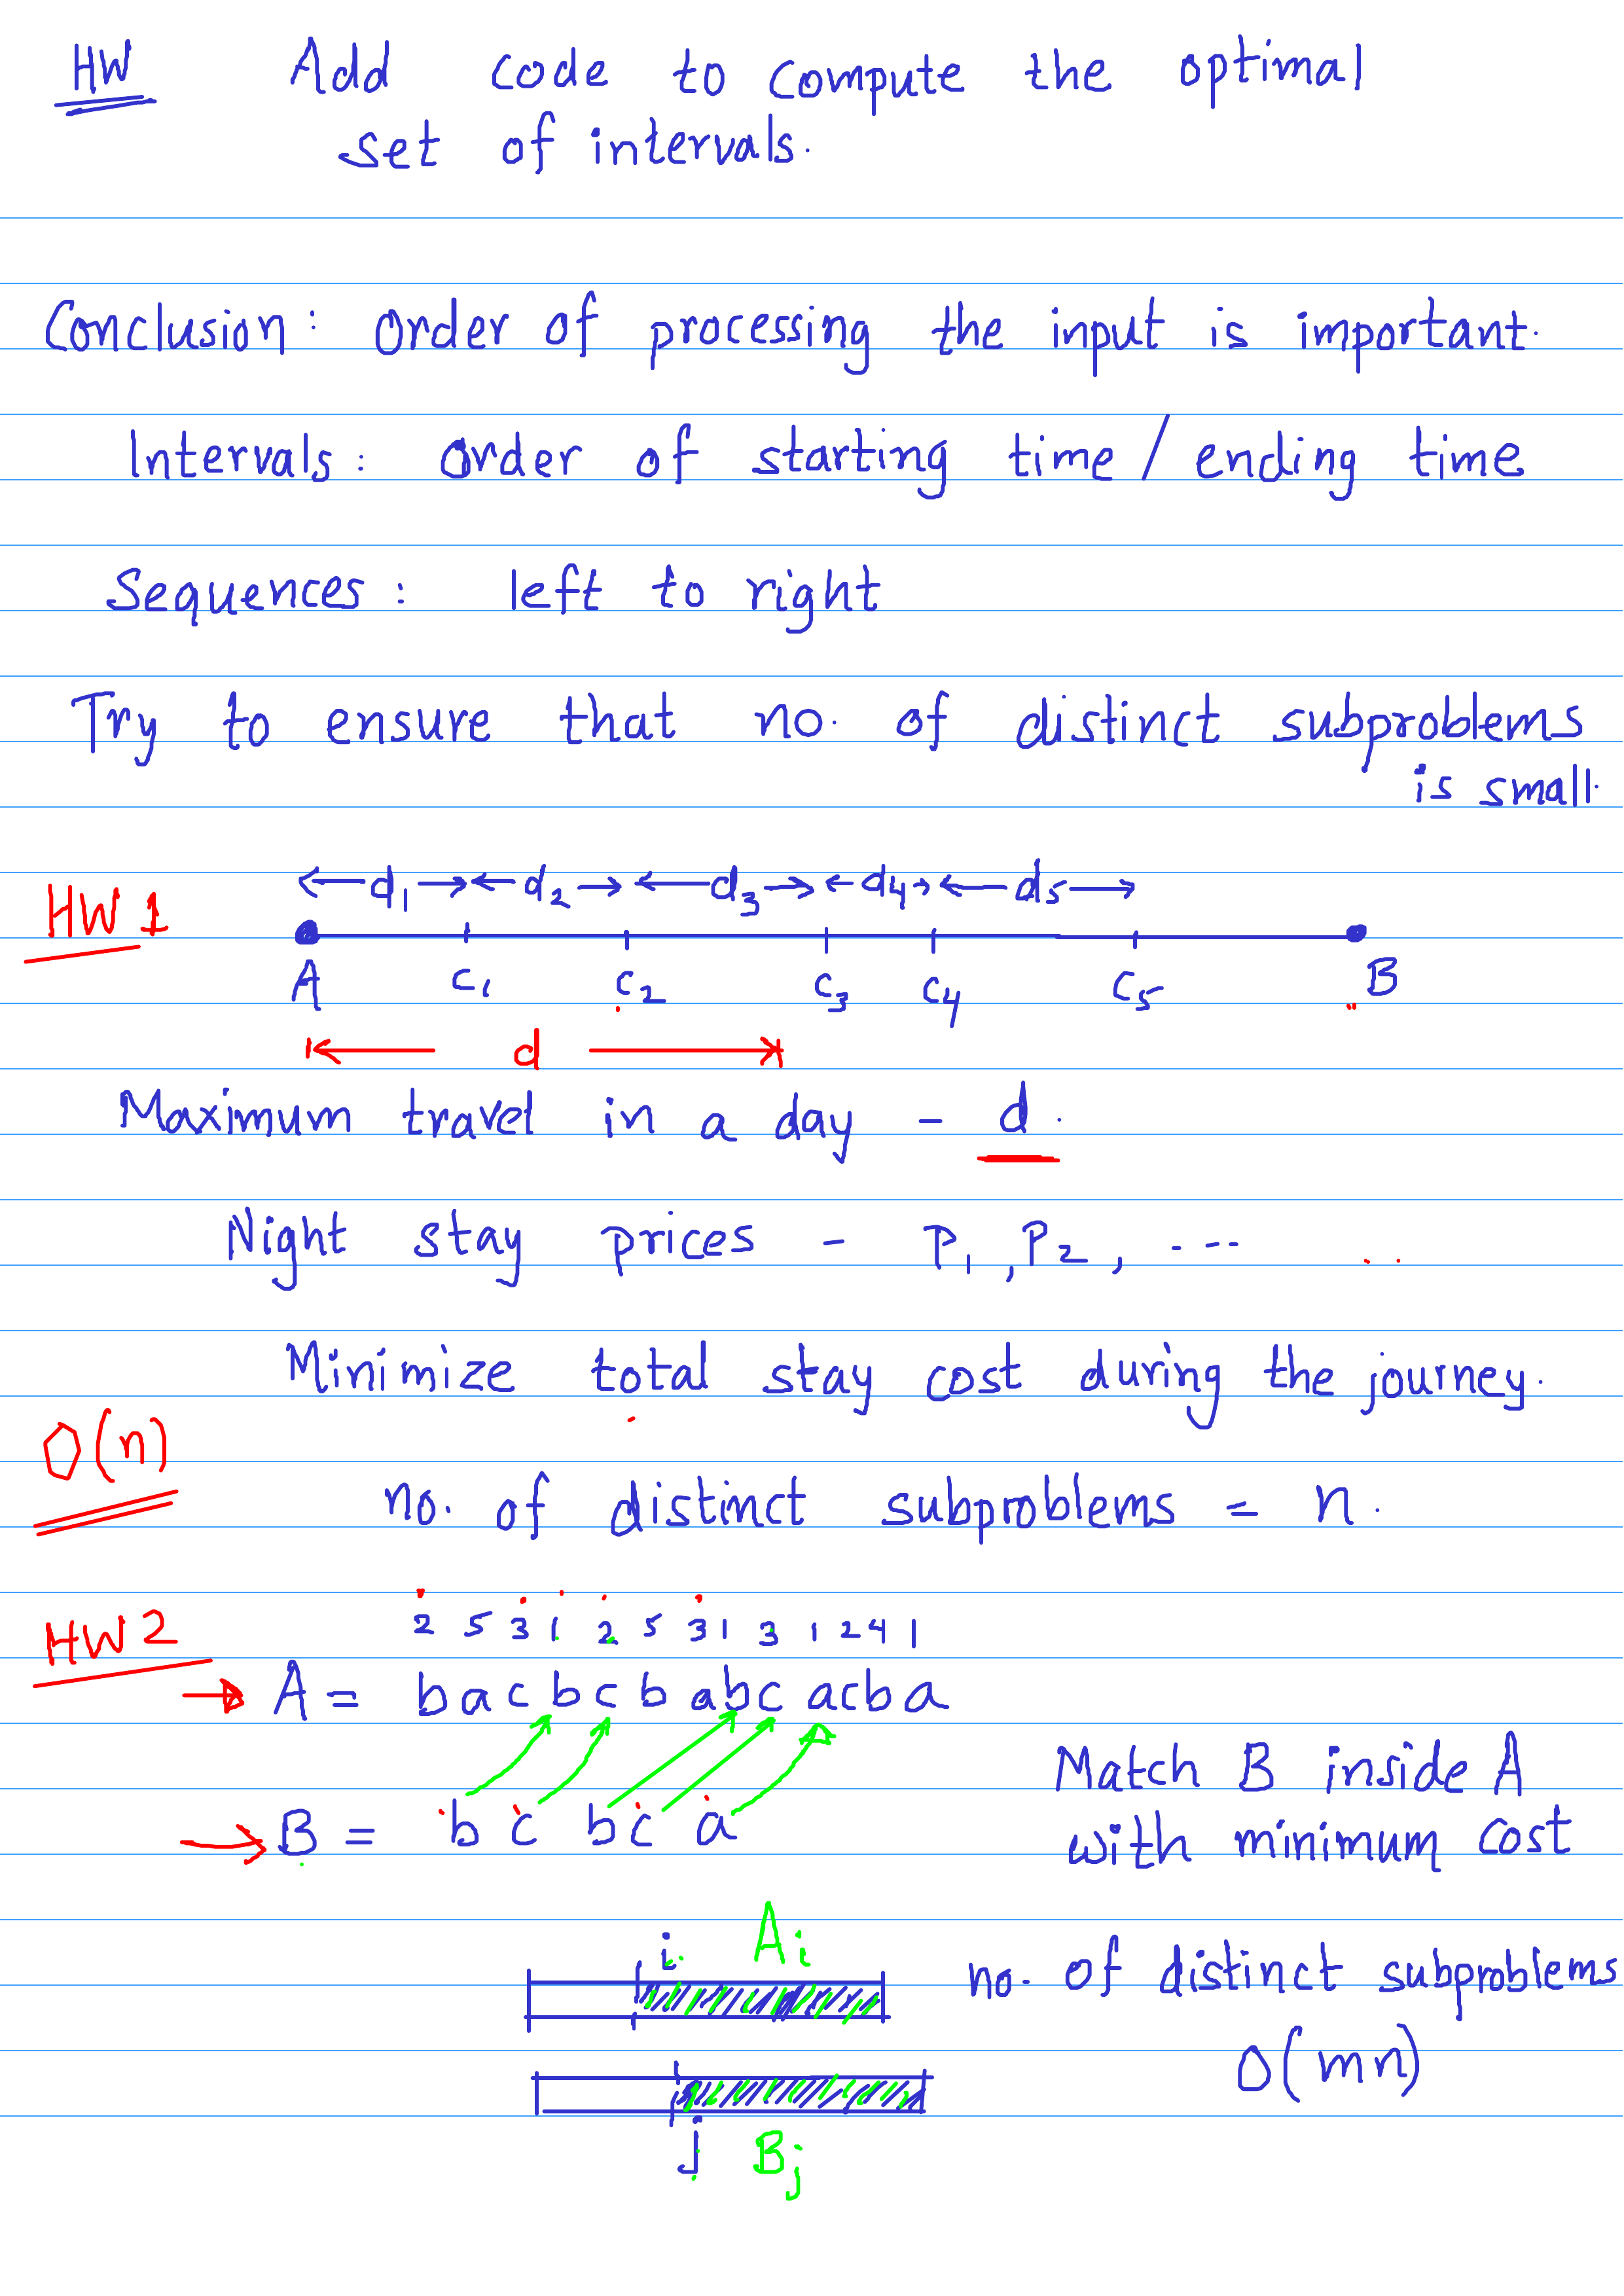 HW Add code to compute the optimal
set of intervals.
Conclusion: Order of processing the input is important.
Intervals: Order of starting time / ending time
Sequences: left to right
Try to ensure that no. of distinct subproblems
is small.
HW 1
d1 d2 d3 d4 d5
A C1 C2 C3 C4 C5 B
d
Maximum travel in a day - d.
Night stay prices - P1, P2, ----
Minimize total stay cost during the journey.
O(n)
no. of distinct subproblems = n.
HW 2
2 5 3 1 2 5 3 1 3 1 2 4 1
A = b a c b c b a b c a c b a
B = b c b c a
Match B inside A
with minimum cost
i Ai
no. of distinct subproblems
O(mn)
j Bj